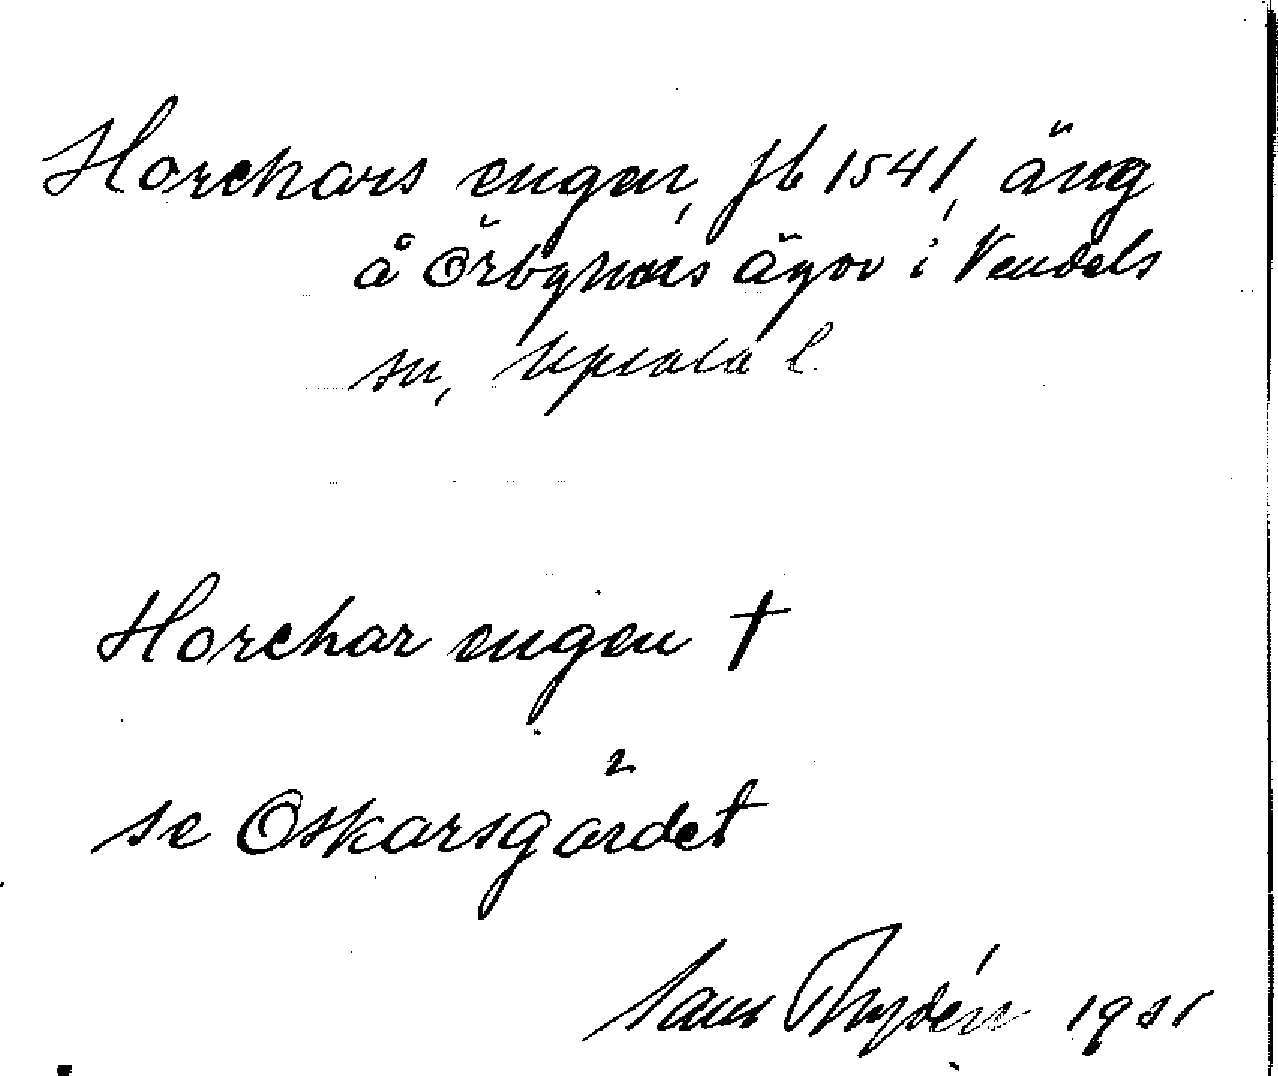 Horchars engen, jb 1541, äng
å Örbyhus ägor i Vendels
sn, Uppsala l.
Horchar engen †
se Oskarsgärdet
Rydén 1951